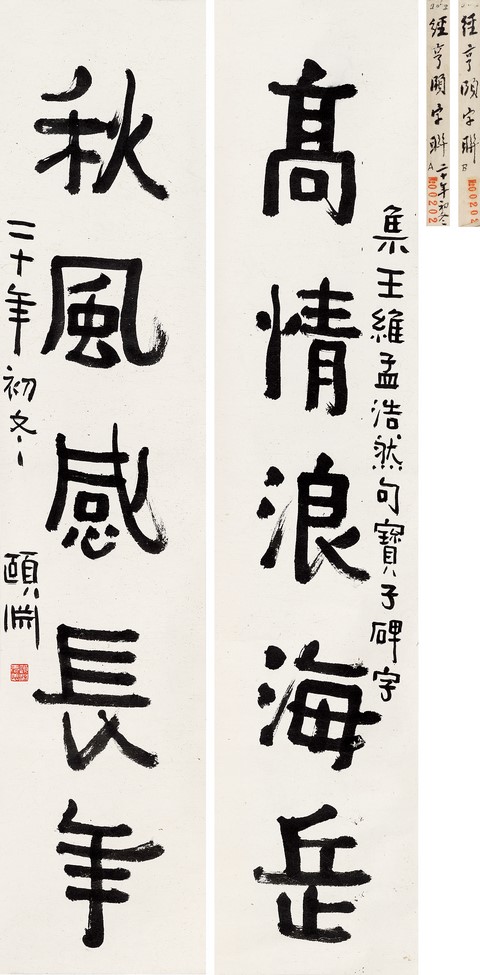 經亨頤字聯
B
00202
經亨頤字聯
A
二十年初冬
00202
集王維孟浩然句寶子碑字
高情浪海岳
秋風感長年
二十年初冬
頤淵